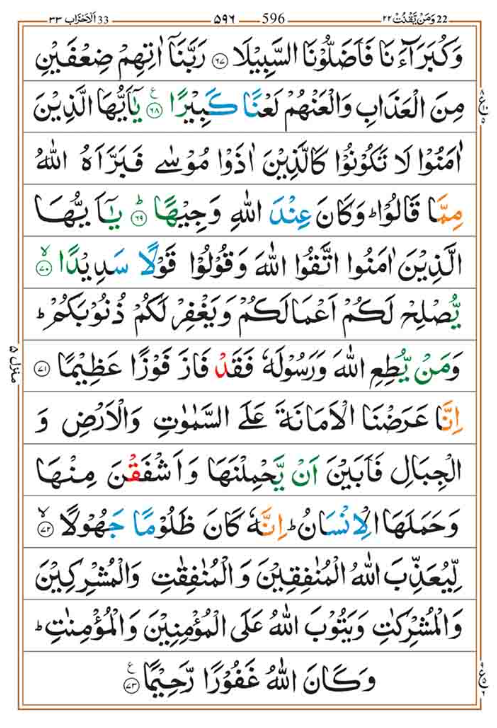 22 وَمَنْ يَّقْنُتْ ٢٢ 596 ٥٩٦ 33 اَلْاَحْزَاب ٣٣
وَكُبَرَآءَنَا فَاَضَلُّوْنَا السَّبِيْلَا ﴿٦٧﴾ رَبَّنَاۤ اٰتِهِمْ ضِعْفَيْنِ
مِنَ الْعَذَابِ وَالْعَنْهُمْ لَعْنًا كَبِيْرًا ﴿٦٨﴾ يٰۤاَيُّهَا الَّذِيْنَ
اٰمَنُوْا لَا تَكُوْنُوْا كَالَّذِيْنَ اٰذَوْا مُوْسٰى فَبَرَّاَهُ اللّٰهُ
مِمَّا قَالُوْا ؕ وَكَانَ عِنْدَ اللّٰهِ وَجِيْهًا ﴿٦٩﴾ يٰۤاَيُّهَا
الَّذِيْنَ اٰمَنُوا اتَّقُوا اللّٰهَ وَقُوْلُوْا قَوْلًا سَدِيْدًا ﴿٧٠﴾
يُّصْلِحْ لَكُمْ اَعْمَالَكُمْ وَيَغْفِرْ لَكُمْ ذُنُوْبَكُمْ ؕ
وَمَنْ يُّطِعِ اللّٰهَ وَرَسُوْلَهٗ فَقَدْ فَازَ فَوْزًا عَظِيْمًا ﴿٧١﴾
اِنَّا عَرَضْنَا الْاَمَانَةَ عَلَى السَّمٰوٰتِ وَالْاَرْضِ وَ
الْجِبَالِ فَاَبَيْنَ اَنْ يَّحْمِلْنَهَا وَاَشْفَقْنَ مِنْهَا
وَحَمَلَهَا الْاِنْسَانُ ؕ اِنَّهٗ كَانَ ظَلُوْمًا جَهُوْلًا ﴿٧٢﴾
لِّيُعَذِّبَ اللّٰهُ الْمُنٰفِقِيْنَ وَالْمُنٰفِقٰتِ وَالْمُشْرِكِيْنَ
وَالْمُشْرِكٰتِ وَيَتُوْبَ اللّٰهُ عَلَى الْمُؤْمِنِيْنَ وَالْمُؤْمِنٰتِ ؕ
وَكَانَ اللّٰهُ غَفُوْرًا رَّحِيْمًا ﴿٧٣﴾
منزل ٥